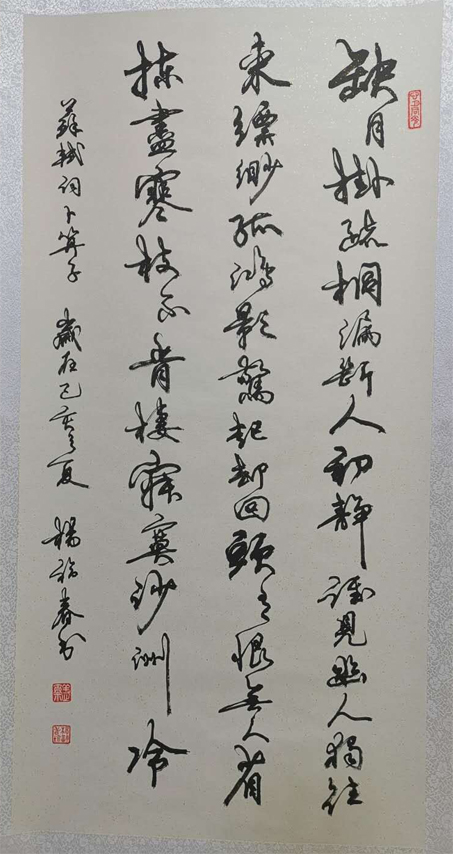 缺月掛疏桐漏斷人初靜誰見幽人獨往
来縹緲孤鴻影驚起却回頭有恨無人省
揀盡寒枝不肯棲寂寞沙洲冷
蘇軾词卜算子 歲在己亥之夏 楊春书